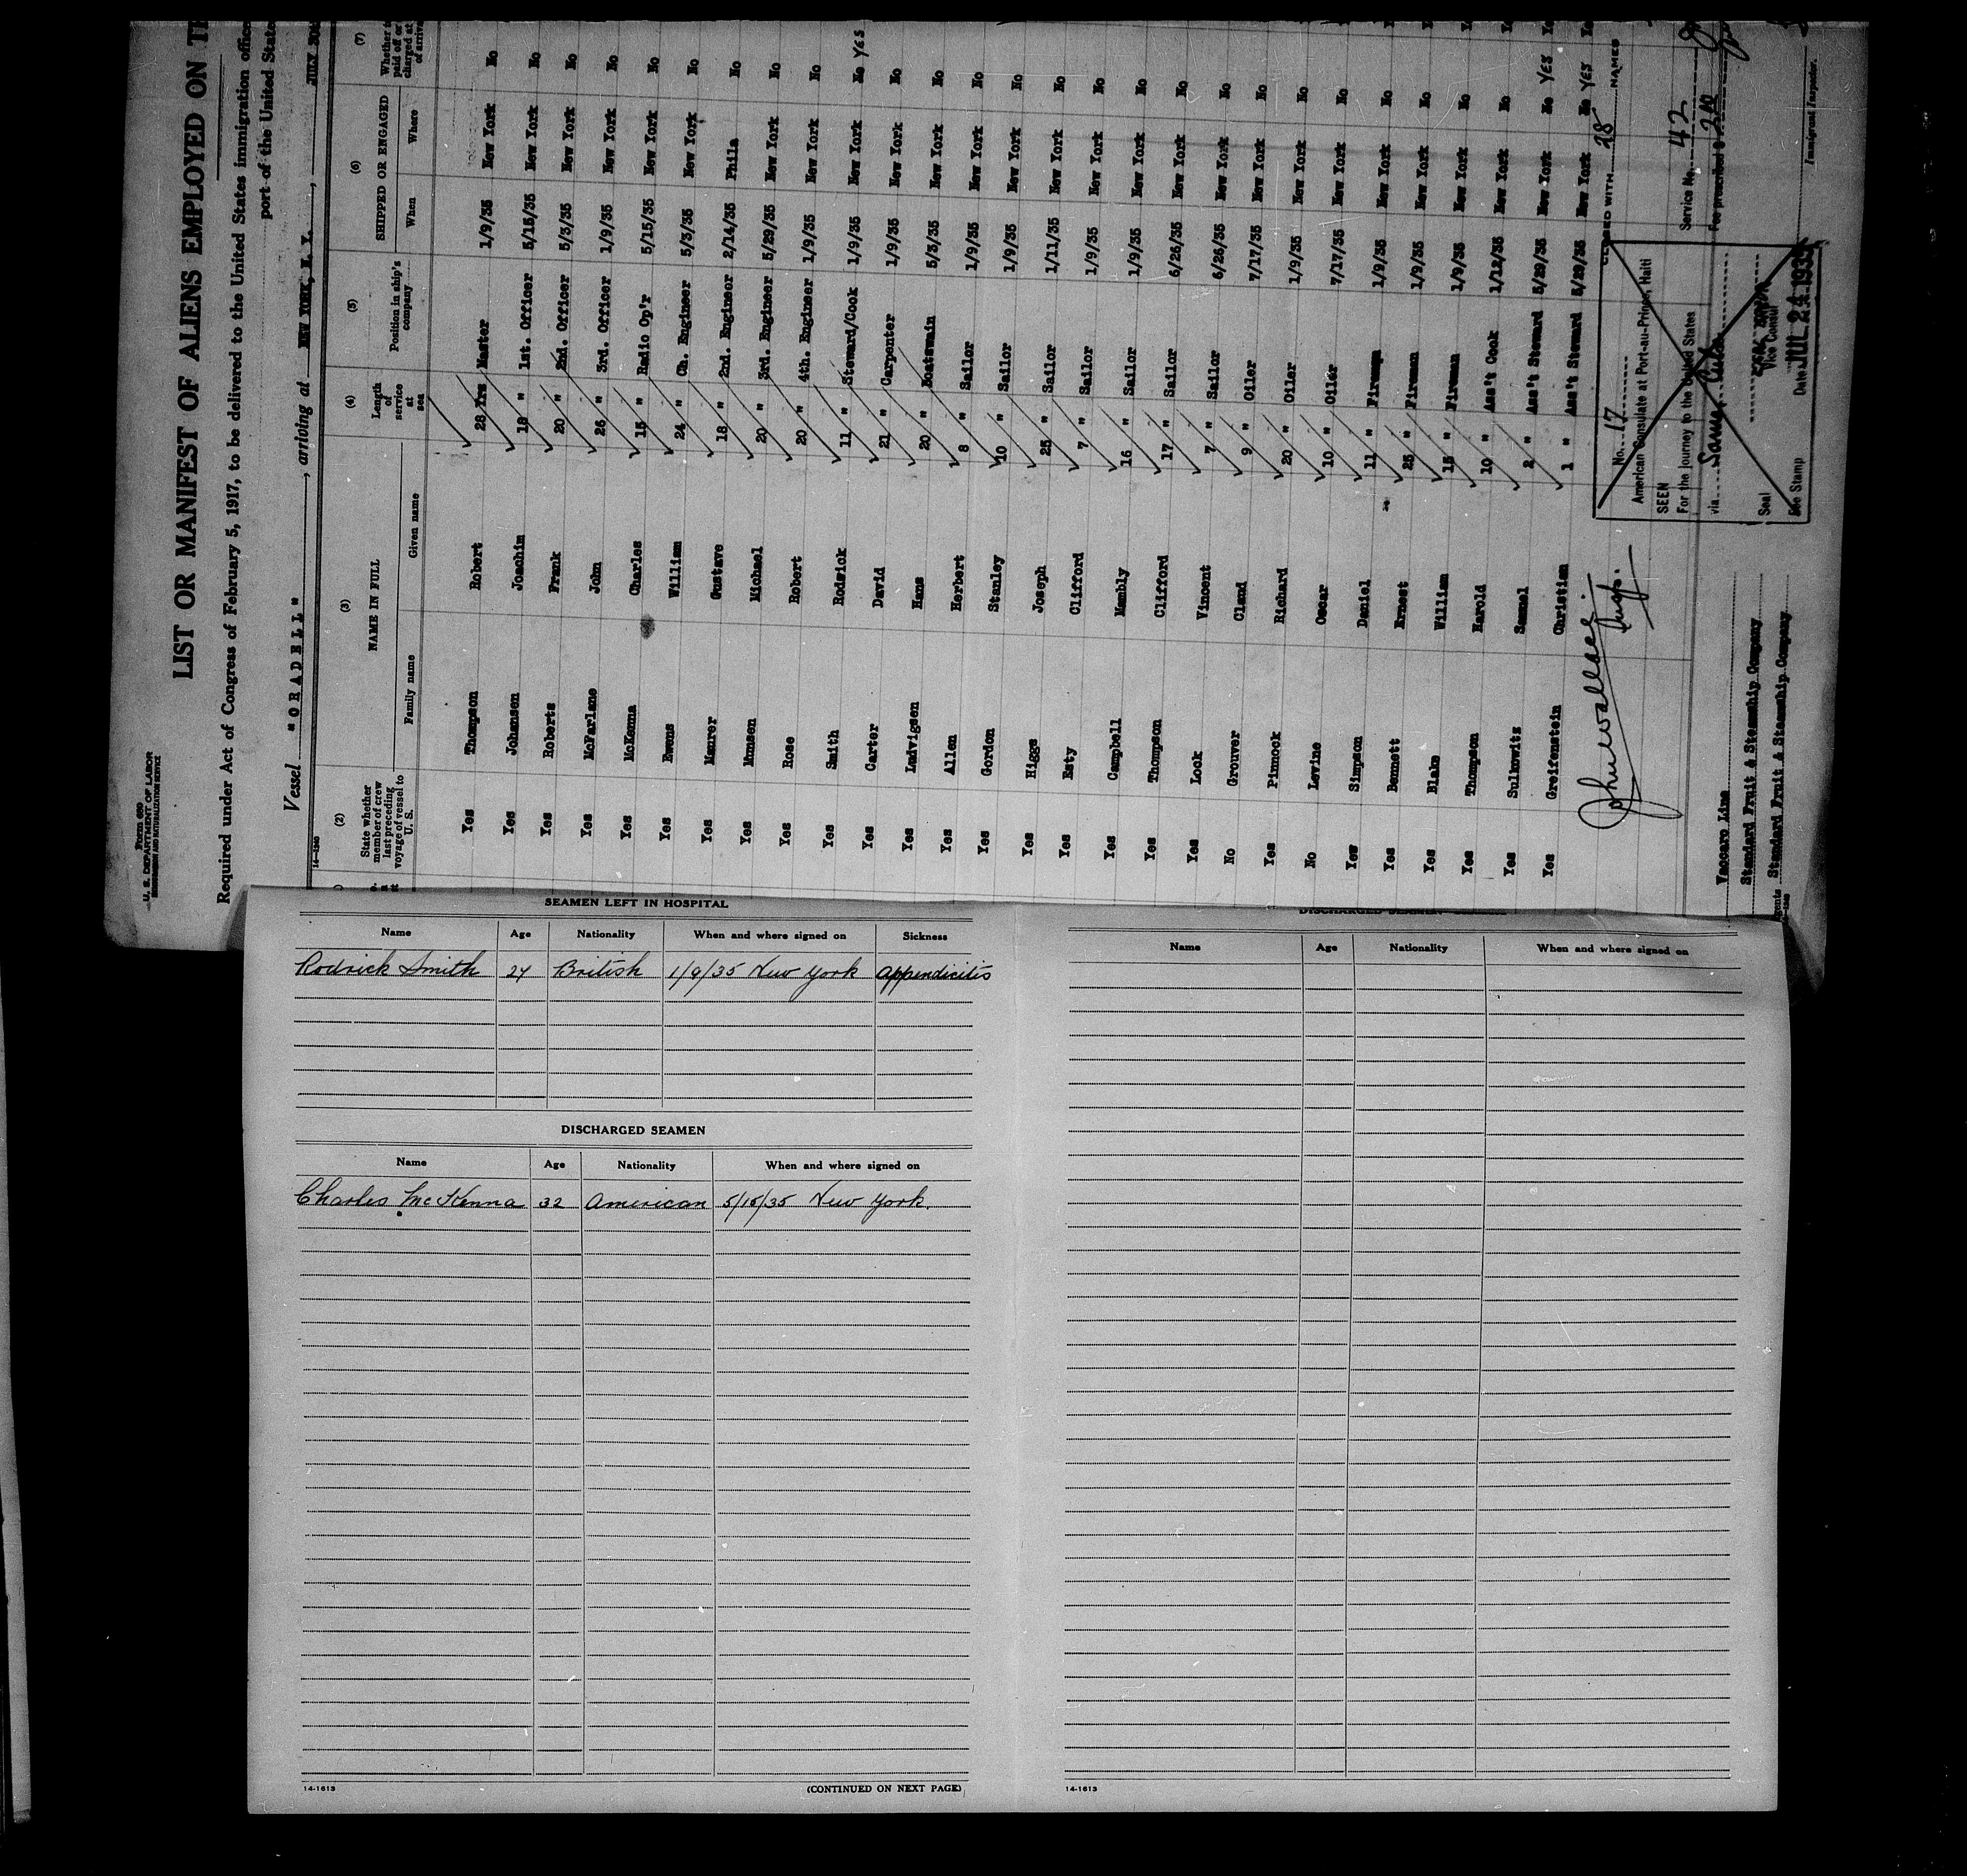 Form 680
U. S. DEPARTMENT OF LABOR
IMMIGRATION AND NATURALIZATION SERVICE
LIST OR MANIFEST OF ALIENS EMPLOYED ON
Required under Act of Congress of February 5, 1917, to be delivered to the United States immigration
port of the United
Vessel "ORADELL", arriving at NEW YORK, N. Y., JULY
14-1240
(2) (3) (4) (5) (6) (7)
State whether member of crew last preceding voyage of vessel to U. S. NAME IN FULL Length of service at sea Position in ship's company SHIPPED OR ENGAGED
Family name Given name When Where
Yes Thompson Robert 28 Yrs Master 1/9/35 New York No
Yes Johansen Joachim 18 " 1st. Officer 5/15/35 New York No
Yes Roberts Frank 20 " 2nd. Officer 5/3/35 New York No
Yes McFarlane John 26 " 3rd. Officer 1/9/35 New York No
Yes McKenna Charles 15 " Radio Op'r 5/15/35 New York No
Yes Ewens William 24 " Ch. Engineer 5/3/35 New York No
Yes Maurer Gustave 18 " 2nd. Engineer 2/14/35 Phila No
Yes Munsen Michael 20 " 3rd. Engineer 5/29/35 New York No
Yes Rose Robert 20 " 4th. Engineer 1/9/35 New York No
Yes Smith Rodrick 11 " Steward/Cook 1/9/35 New York No YES
Yes Carter David 21 " Carpenter 1/9/35 New York No
Yes Ludvigsen Hans 20 " Boatswain 5/3/35 New York No
Yes Allen Herbert 8 " Sailor 1/9/35 New York No
Yes Gordon Stanley 10 " Sailor 1/9/35 New York No
Yes Higgs Joseph 25 " Sailor 1/11/35 New York No
Yes Esty Clifford 7 " Sailor 1/9/35 New York No
Yes Campbell Manbly 16 " Sailor 1/9/35 New York No
Yes Thompson Clifford 17 " Sailor 6/26/35 New York No
Yes Lock Vincent 7 " Sailor 6/26/35 New York No
No Grouver Cland 9 " Oiler 7/17/35 New York No
Yes Pinnock Richard 20 " Oiler 1/9/35 New York No
No Levine Oscar 10 " Oiler 7/17/35 New York No
Yes Simpson Daniel 11 " Fireman 1/9/35 New York No
Yes Bennett Ernest 25 " Fireman 1/9/35 New York No
Yes Blake William 15 " Fireman 1/9/35 New York No
Yes Thompson Harold 10 " Ass't Cook 1/12/35 New York No
Yes Sulkowitz Samuel 2 " Ass't Steward 5/29/35 New York No YES
Yes Greifenstein Christian 1 " Ass't Steward 5/29/35 New York No YES
CLOSED WITH 28 NAMES
No. 17
American Consulate at Port-au-Prince, Haiti
SEEN
For the journey to the United States
via
Seal Vice Consul
Fee Stamp Date JUL 24 1935
Service No. 42
Fee prescribed
Vaccaro Line
Standard Fruit & Steamship Company
Agents Standard Fruit & Steamship Company
Immigrant Inspector.
SEAMEN LEFT IN HOSPITAL
Name Age Nationality When and where signed on Sickness
Rodrick Smith 27 British 1/9/35 New York appendicitis
DISCHARGED SEAMEN
Name Age Nationality When and where signed on
Charles McKenna 32 American 5/15/35 New York.
14-1613 (CONTINUED ON NEXT PAGE)
DISCHARGED SEAMEN
Name Age Nationality When and where signed on
14-1613